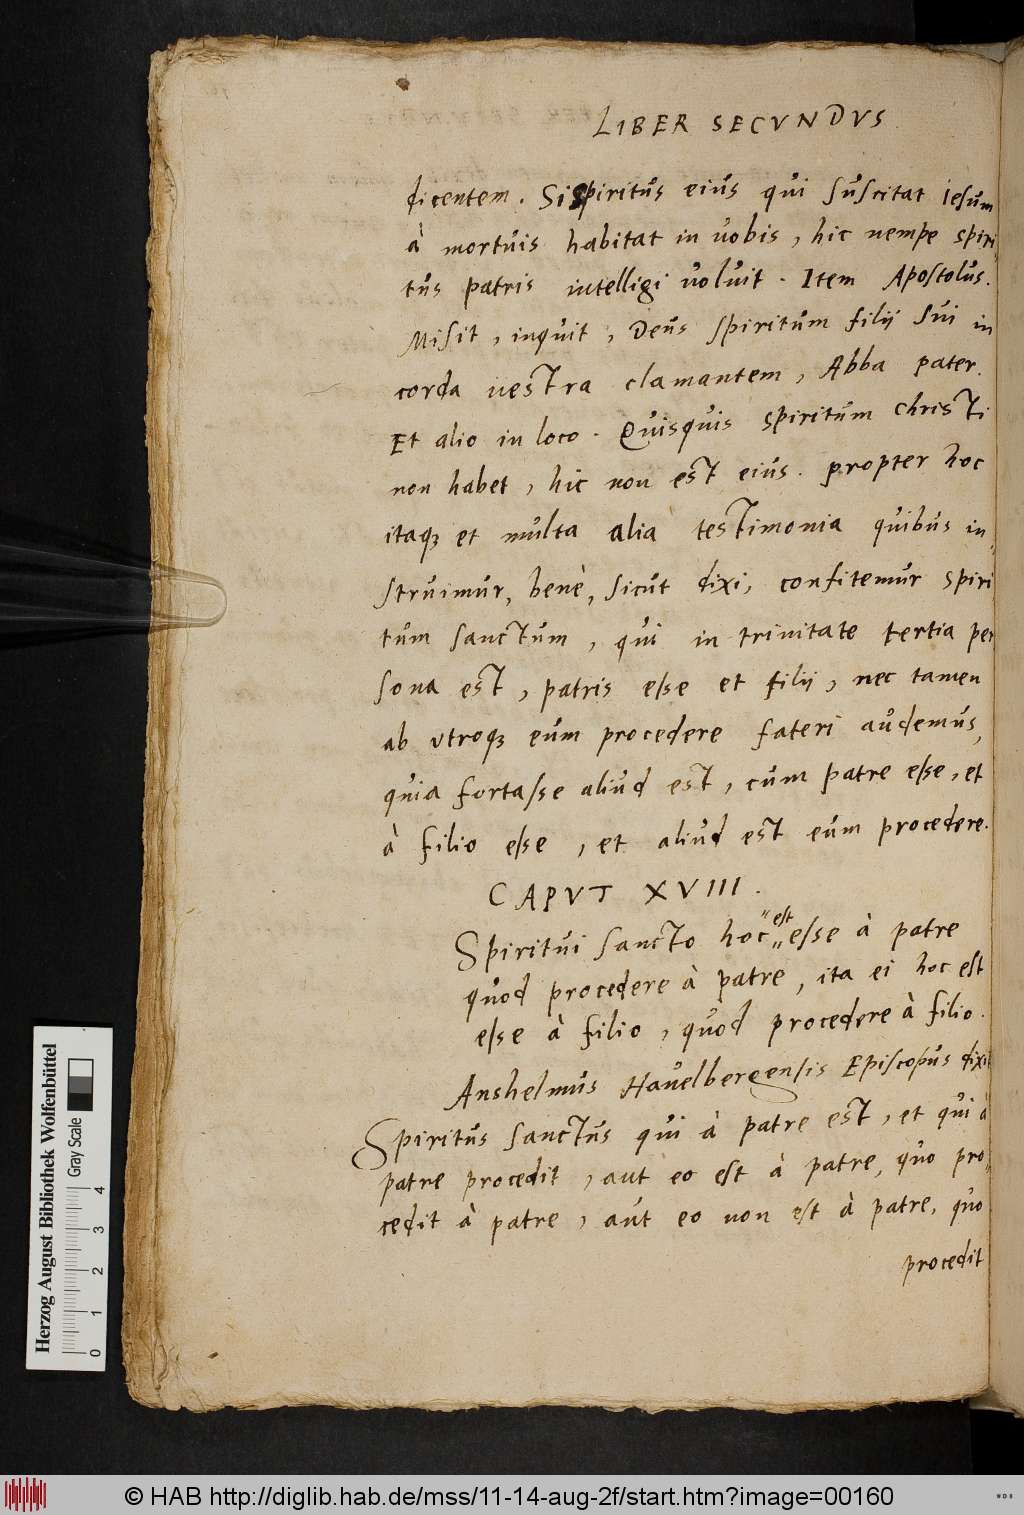 LIBER SECVNDVS
dicentem. Si spiritus eius qui suscitat iesum
à mortuis habitat in uobis, hic nempe spiri
tus patris intelligi uoluit. Item Apostolus.
Misit, inquit, Deus spiritum filii sui in
corda uestra clamantem, Abba pater.
Et alio in loco. Quisquis spiritum christi
non habet, hic non est eius. propter hoc
itaqꝫ et multa alia testimonia quibus in„
struimur, benè, sicut dixi, confitemur spiri
tum sanctum, qui in trinitate tertia per
sona est, patris esse et filii, nec tamen
ab utroqꝫ eum procedere fateri audemus,
quia fortasse aliud est, cum patre esse, et
à filio esse, et aliud est eum procedere.
CAPVT XVIII.
Spiritui sancto hoc est esse à patre
quod procedere à patre, ita ei hoc est
esse à filio, quòd procedere à filio.
Anshelmus Hauelbergensis Episcopus dixit
Spiritus sanctus qui à patre est, et qui à
patre procedit, aut eo est à patre, quo pro„
cedit à patre, aut eo non est à patre, quo
procedit
Herzog August Bibliothek Wolfenbüttel
Gray Scale
0 1 2 3 4
© HAB http://diglib.hab.de/mss/11-14-aug-2f/start.htm?image=00160